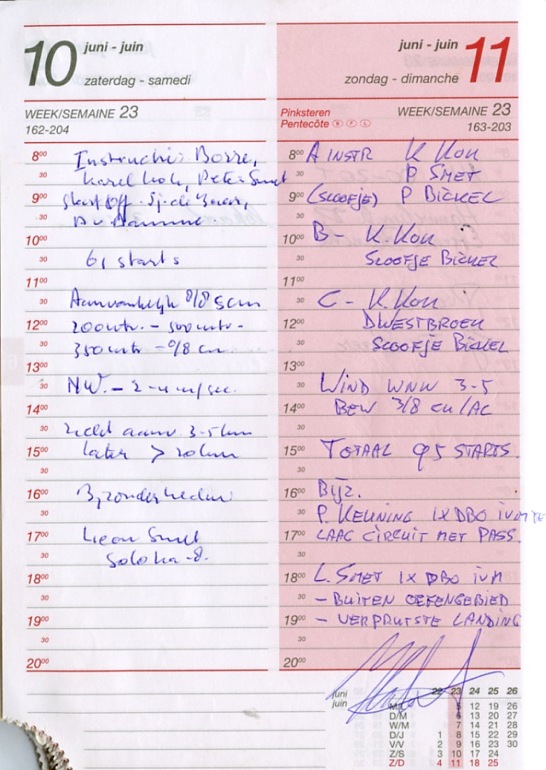 10 juni - juin
zaterdag - samedi
WEEK/SEMAINE 23
162-204
8⁰⁰ Instructie: Borre,
30 Karel Kok, Peter Smet
9⁰⁰ Startoff. Sj. de
30
10⁰⁰
30 61 starts
11⁰⁰
30 Aanvankelijk 8/8 Scm
12⁰⁰ 200mtr. - 300mtr -
30 350mtr - 0/8 cm.
13⁰⁰
30 NW. - 2-4 m/sec.
14⁰⁰
30 Zicht aanv 3-5km
15⁰⁰ later > 20km
30
16⁰⁰ Bijzonderheden
30
17⁰⁰ Leon Smet
30 Solo Ka-8.
18⁰⁰
30
19⁰⁰
30
20⁰⁰
juni - juin 11
zondag - dimanche
Pinksteren WEEK/SEMAINE 23
Pentecôte B F L 163-203
8⁰⁰ A INSTR K KOK
30 P SMET
9⁰⁰ (SLOOFJE) P BICKEL
30
10⁰⁰ B - K. KOK
30 SLOOFJE BICKEL
11⁰⁰
30 C - K. KOK
12⁰⁰ D WESTBROEK
30 SLOOFJE BICKEL
13⁰⁰
30 WIND WNW 3-5
14⁰⁰ BEW 3/8 CU/AC
30
15⁰⁰ TOTAAL 95 STARTS.
30
16⁰⁰ BIJZ.
30 P. KEUNING 1X DBO IVM TE
17⁰⁰ LAAG CIRCUIT MET PASS.
30
18⁰⁰ L. SMET 1X DBO IVM
30 - BUITEN OEFENGEBIED
19⁰⁰ - VERPRUTSTE LANDING
30
20⁰⁰
juni 22 23 24 25 26
juin
M/L 5 12 19 26
D/M 6 13 20 27
W/M 7 14 21 28
D/J 1 8 15 22 29
V/V 2 9 16 23 30
Z/S 3 10 17 24
Z/D 4 11 18 25